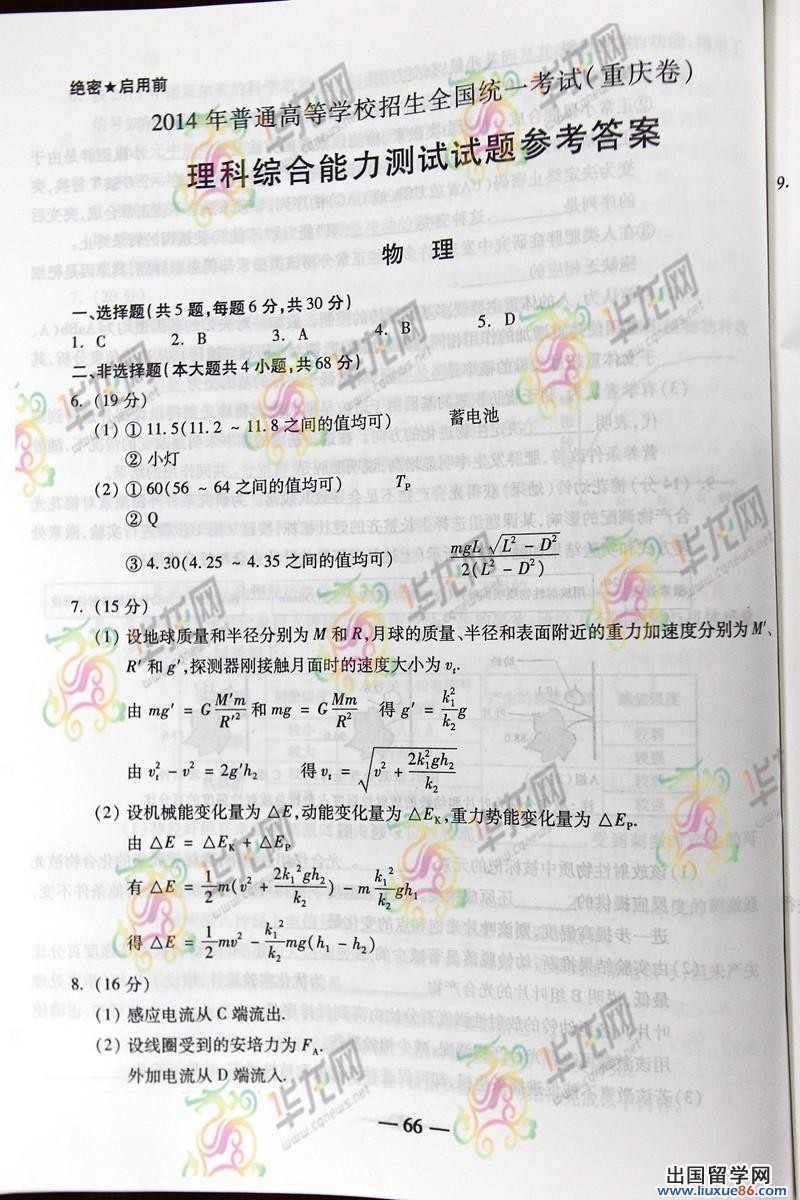 绝密★启用前
2014年普通高等学校招生全国统一考试(重庆卷)
理科综合能力测试试题参考答案
物 理
一、选择题(共5题,每题6分,共30分)
1. C 2. B 3. A 4. B 5. D
二、非选择题(本大题共4小题,共68分)
6. (19分)
(1) ① 11.5(11.2 ~ 11.8之间的值均可) 蓄电池
② 小灯
(2) ① 60(56 ~ 64之间的值均可) T_P
② Q
③ 4.30(4.25 ~ 4.35之间的值均可) mgL√(L² − D²) / 2(L² − D²)
7. (15分)
(1) 设地球质量和半径分别为M和R,月球的质量、半径和表面附近的重力加速度分别为M′、
R′和g′,探测器刚接触月面时的速度大小为v_t.
由 mg′ = G M′m/R′² 和 mg = G Mm/R² 得 g′ = k₁²/k₂ g
由 v_t² − v² = 2g′h₂ 得 v_t = √(v² + 2k₁²gh₂/k₂)
(2) 设机械能变化量为△E,动能变化量为△E_K,重力势能变化量为△E_P.
由 △E = △E_K + △E_P
有 △E = 1/2 m(v² + 2k₁²gh₂/k₂) − m k₁²/k₂ gh₁
得 △E = 1/2 mv² − k₁²/k₂ mg(h₁ − h₂)
8. (16分)
(1) 感应电流从C端流出.
(2) 设线圈受到的安培力为F_A.
外加电流从D端流入.
— 66 —
9.
华龙网
www.cqnews.net
出国留学网
www.liuxue86.com